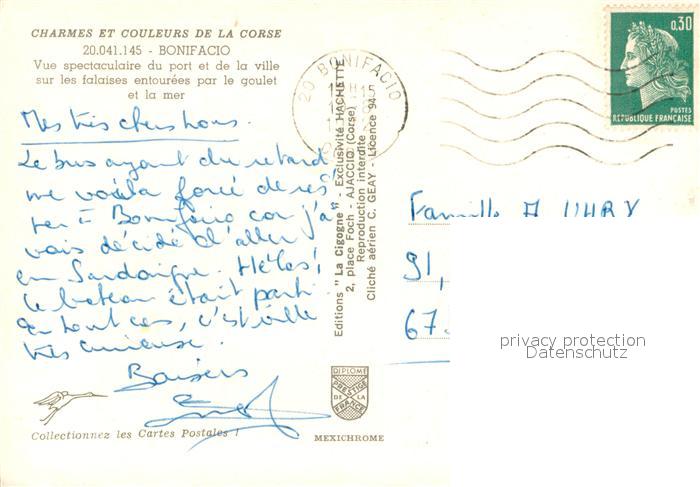 CHARMES ET COULEURS DE LA CORSE
20.041.145 - BONIFACIO
Vue spectaculaire du port et de la ville
sur les falaises entourées par le goulet
et la mer
Mes très chers tous.
Le bus ayant du retard
me voilà forcé de res
ter à Bonifacio car j'a
vais décidé d'aller
en Sardaigne. Hélas!
le bateau était parti
En tout cas, c'est ville
très curieuse.
Baisers
Collectionnez les Cartes Postales !
Editions "La Cigogne" - Exclusivité HACHETTE
2, place Foch - AJACCIO (Corse)
Reproduction interdite
Cliché aérien C. GEAY - Licence 94
DIPLOME
PRESTIGE
DE LA
FRANCE
MEXICHROME
20 BONIFACIO
0,30
POSTES
REPUBLIQUE FRANÇAISE
Famille
91,
67
privacy protection
Datenschutz